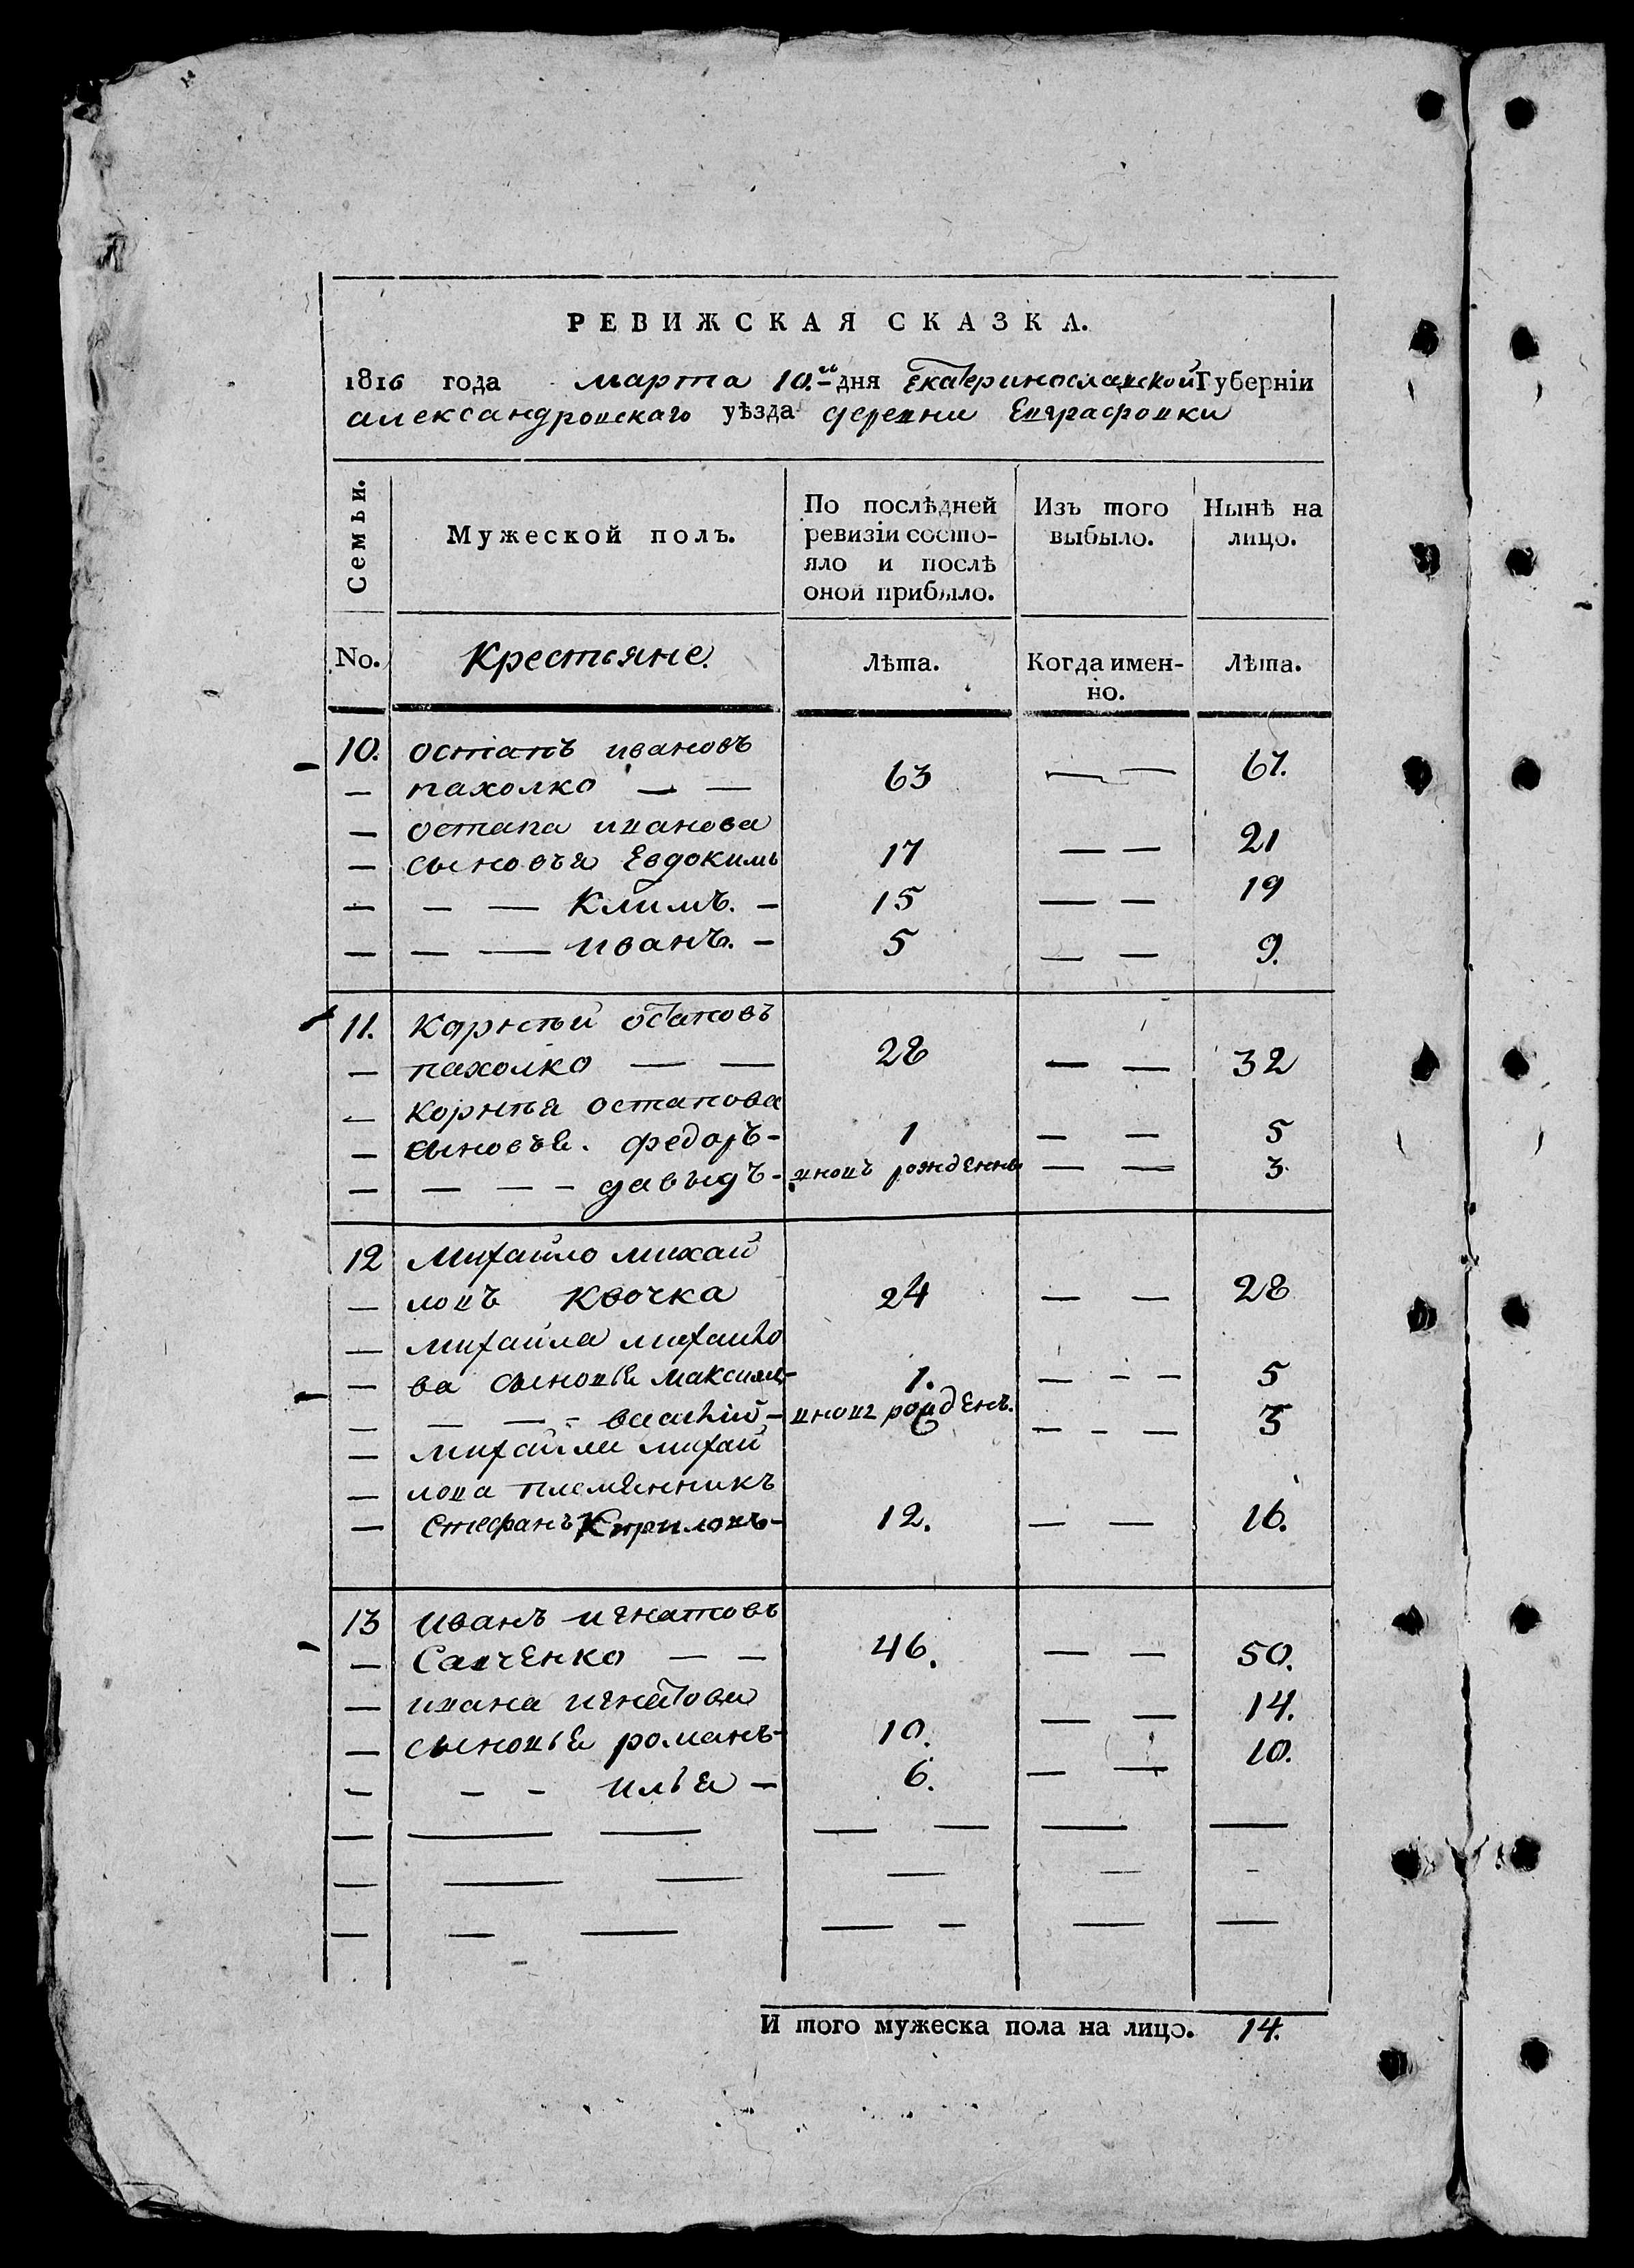 РЕВИЖСКАЯ СКАЗКА.
1816 года марта 10.го дня Екатеринославской Губерніи
александровскаго уѣзда деревни Евграфовки
Семьи.
Мужеской полъ.
По послѣдней
ревизіи состо-
яло и послѣ
оной прибыло.
Изъ того
выбыло.
Нынѣ на
лицо.
No.
Крестьяне.
Лѣта.
Когда имен-
но.
Лѣта.
10. остапъ ивановъ
— пахолко — — 63 — — 67.
— остапа иванова
— сыновья Евдокимъ 17 — — 21
— — — Климъ. – 15 — — 19
— — — иванъ. – 5 — — 9.
11. Корнѣй остаповъ
— пахолко — — 28 — — 32
— Корнѣя остапова
— сыновья. федоръ – 1 — — 5
— — — – давыдъ – вновь рожденны — — 3
12 Михайло михай
— ловъ Квочка 24 — — 28
— михайла михайло
— ва сыновья Максимъ– 1. — – – 5
— — — – василій – вновь рожденъ. — – — 3
— михайлы михай
— лова племянникъ
— Стефанъ Кириловъ– 12. — — 16.
13 Иванъ игнатовъ
— Савченко — — 46. — — 50.
— ивана игнатова
— сыновья романъ– 10. — — 14.
– – – илья – 6. — — 10.
И того мужеска пола на лицо. 14.